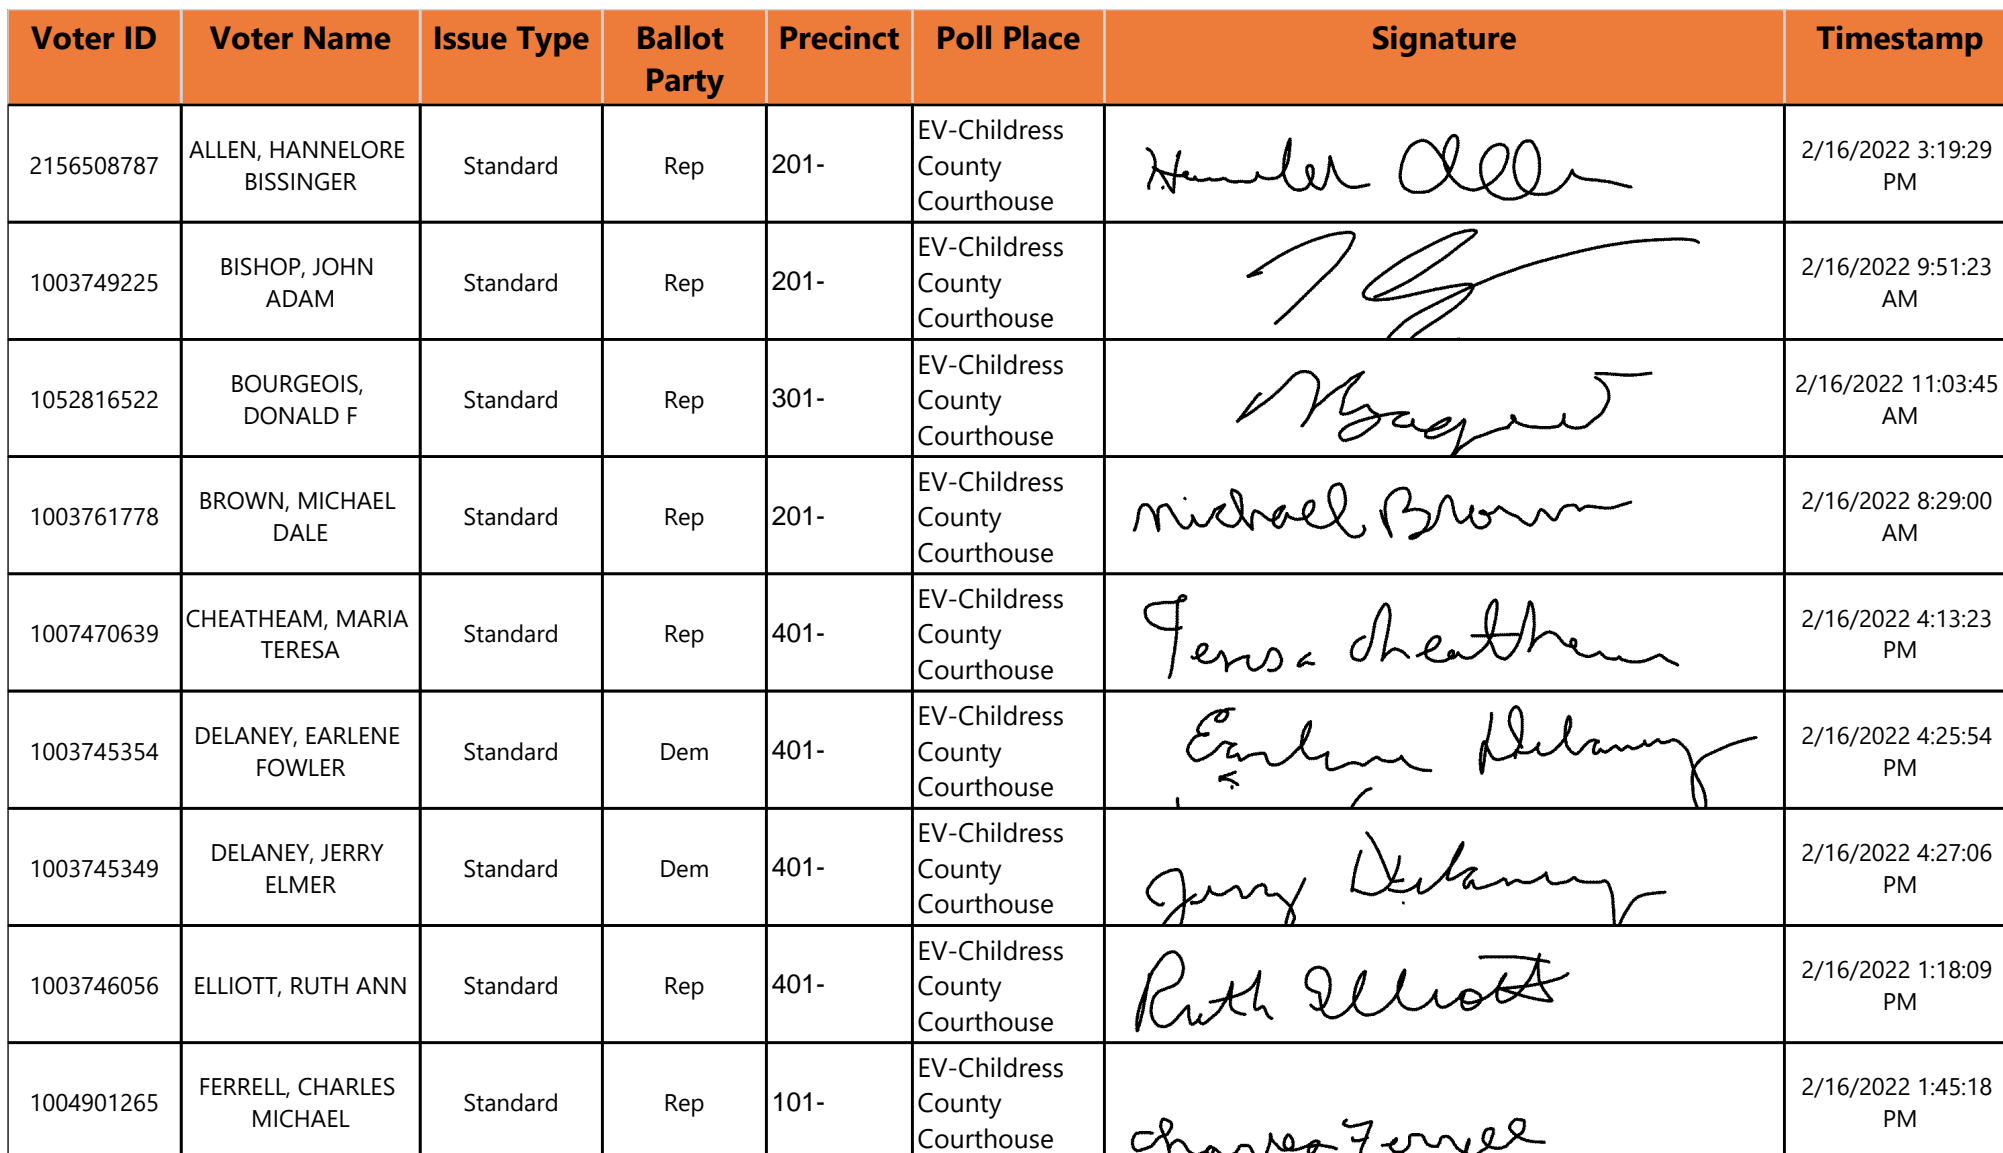 Voter ID Voter Name Issue Type Ballot Party Precinct Poll Place Signature Timestamp
2156508787 ALLEN, HANNELORE BISSINGER Standard Rep 201- EV-Childress County Courthouse Allen 2/16/2022 3:19:29 PM
1003749225 BISHOP, JOHN ADAM Standard Rep 201- EV-Childress County Courthouse 2/16/2022 9:51:23 AM
1052816522 BOURGEOIS, DONALD F Standard Rep 301- EV-Childress County Courthouse 2/16/2022 11:03:45 AM
1003761778 BROWN, MICHAEL DALE Standard Rep 201- EV-Childress County Courthouse Michael Brown 2/16/2022 8:29:00 AM
1007470639 CHEATHEAM, MARIA TERESA Standard Rep 401- EV-Childress County Courthouse Teresa Cheatheam 2/16/2022 4:13:23 PM
1003745354 DELANEY, EARLENE FOWLER Standard Dem 401- EV-Childress County Courthouse Earlene Delaney 2/16/2022 4:25:54 PM
1003745349 DELANEY, JERRY ELMER Standard Dem 401- EV-Childress County Courthouse Jerry Delaney 2/16/2022 4:27:06 PM
1003746056 ELLIOTT, RUTH ANN Standard Rep 401- EV-Childress County Courthouse Ruth Elliott 2/16/2022 1:18:09 PM
1004901265 FERRELL, CHARLES MICHAEL Standard Rep 101- EV-Childress County Courthouse Charles Ferrell 2/16/2022 1:45:18 PM